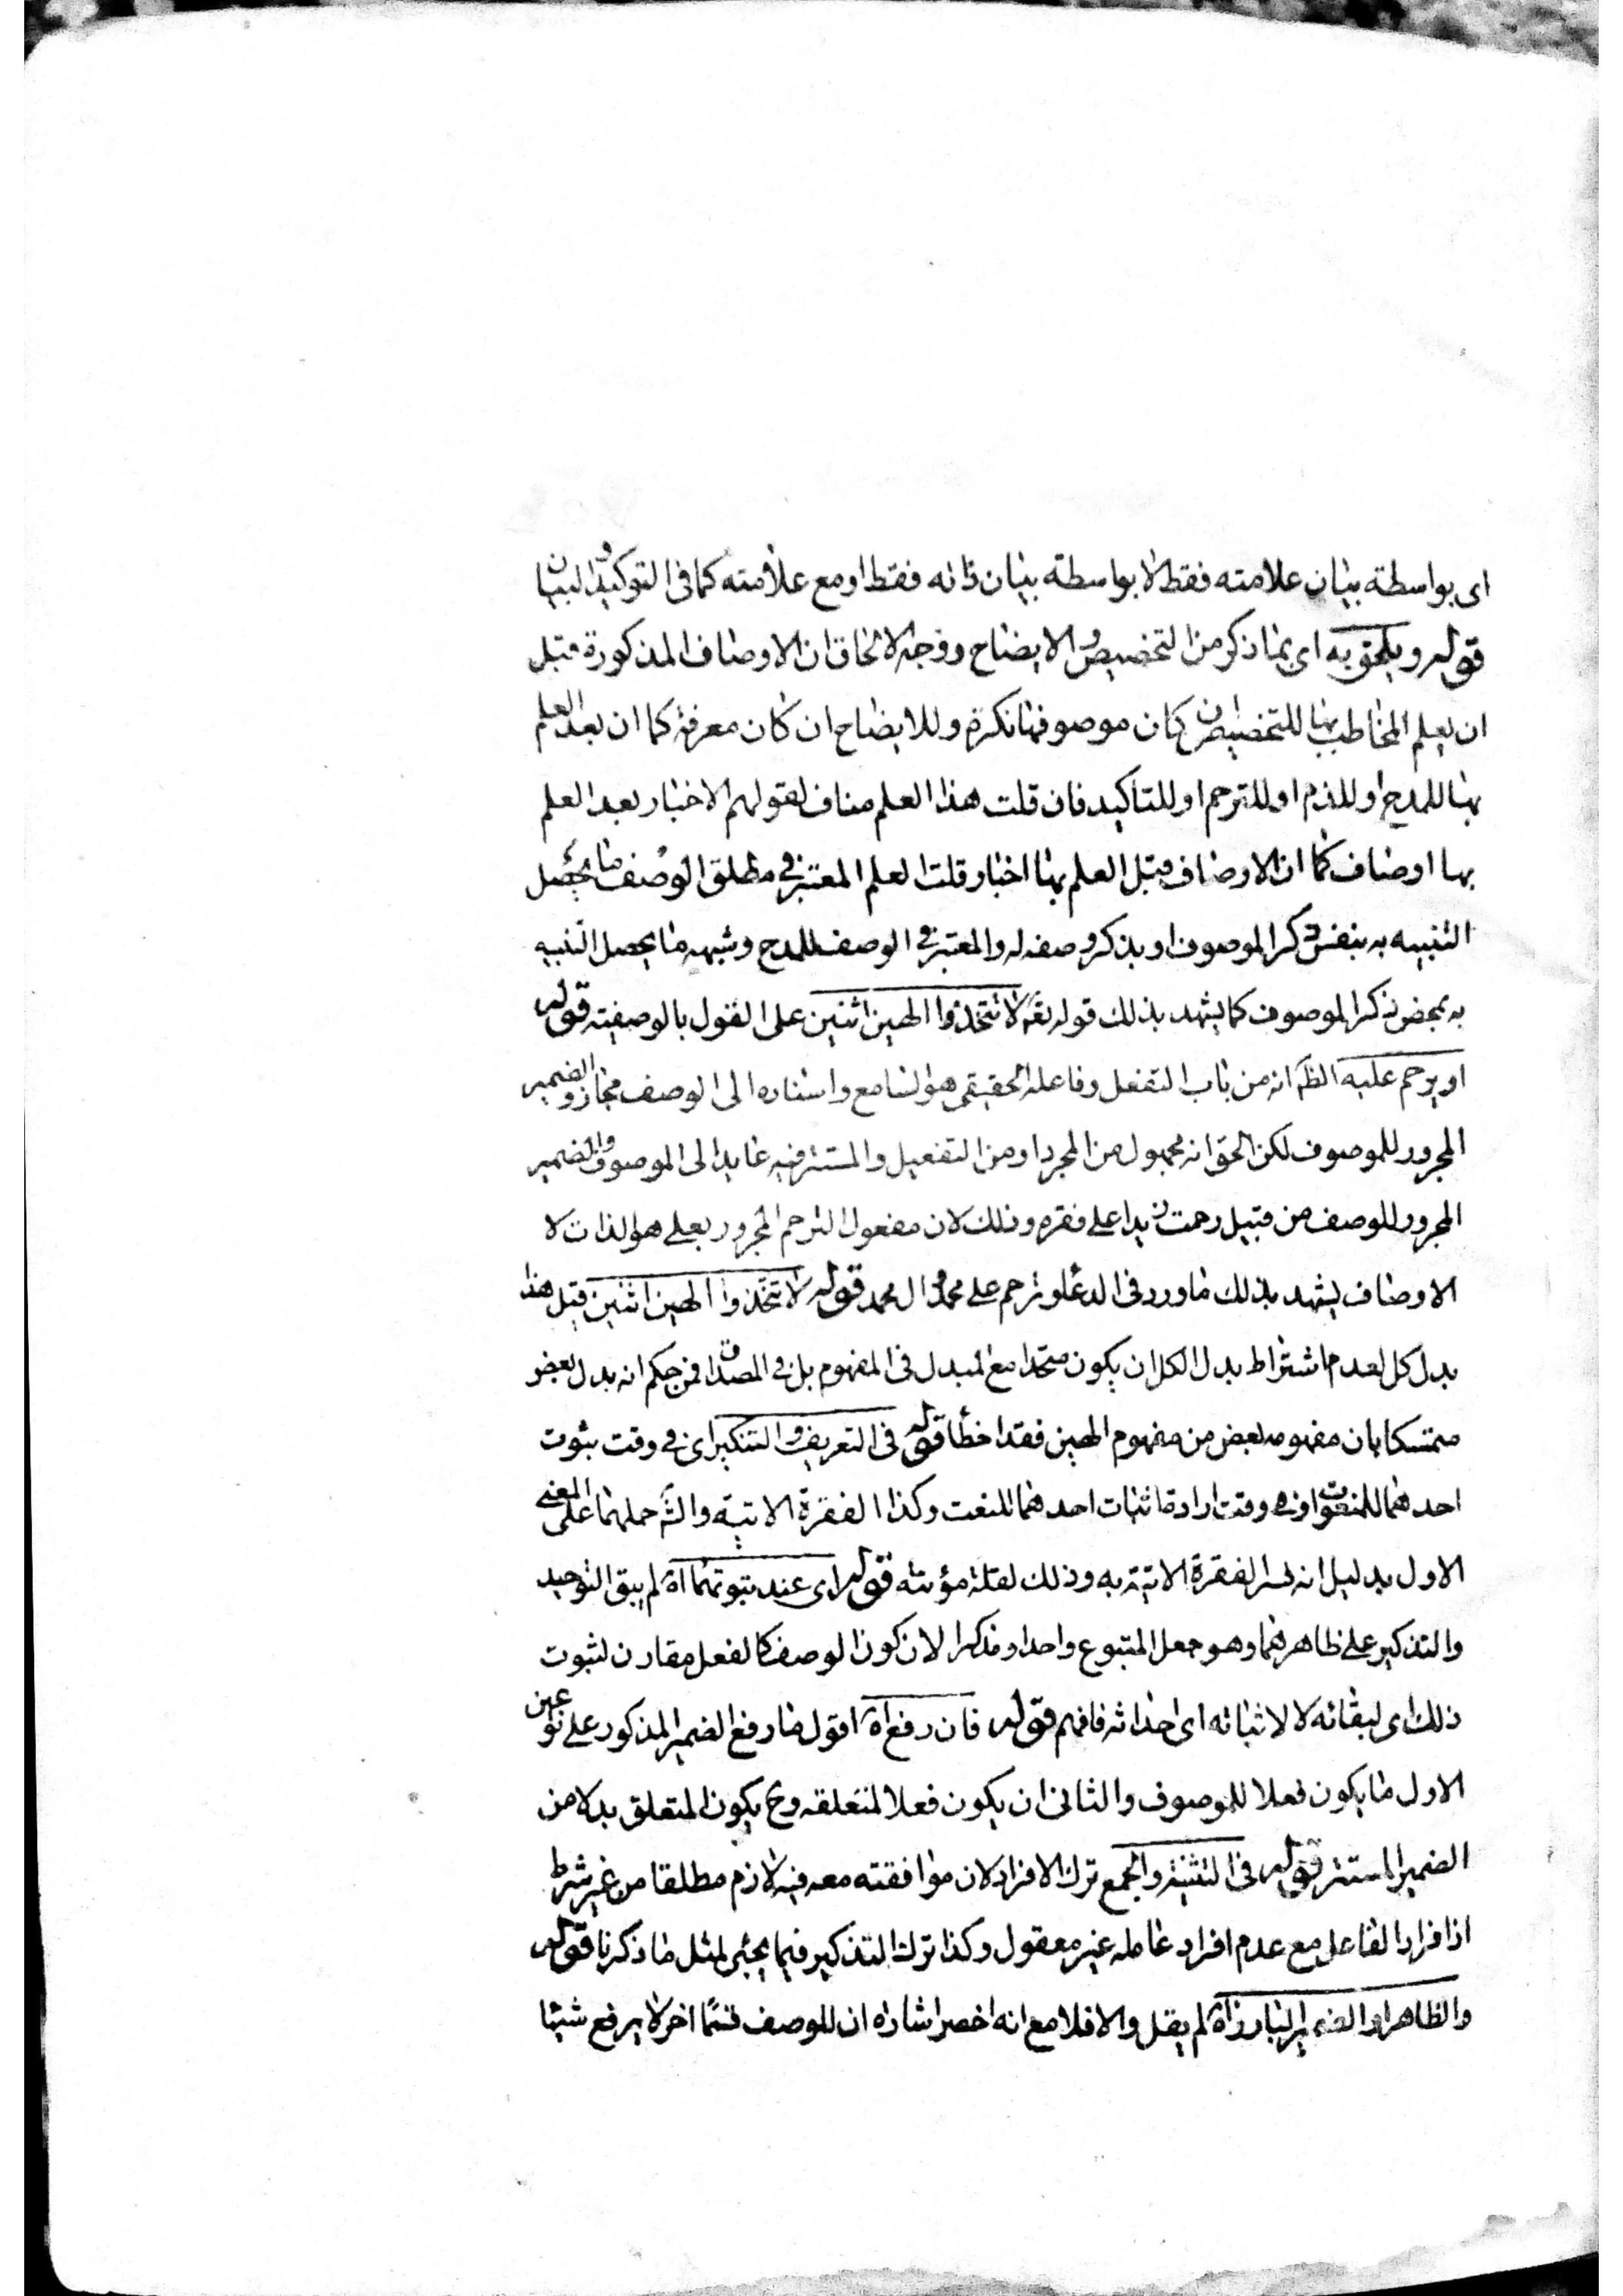 اى بواسطة بيان علامته فقط لا بواسطة بيان ذاته فقط او مع علامته كما فى التوكيد و البيان
قوله ويلحق به اى بما ذكر من التخصيص و الايضاح ووجه الالحاق ان الاوصاف المذكورة قبل
ان يعلم المخاطب بها للتخصيص ان كان موصوفها نكرة وللايضاح ان كان معرفة كما ان بعد العلم
بها للمدح او للذم او للترحم او للتأكيد فان قلت هذا العلم مناف لقولهم الاخبار بعد العلم
بها اوصاف كما ان الاوصاف قبل العلم بها اخبار قلت العلم المعتبر فى مطلق الوصف ما يحصل
التنبيه به بنفس ذكر الموصوف او بذكر وصفه له والمعتبر فى الوصف للمدح وشبهه ما يحصل التنبيه
به بمحض ذكر الموصوف كما يشهد بذلك قوله تعم لا تتخذوا الهين اثنين على القول بالوصفيته قوله
او يرحم عليه الظ انه من باب التفعل وفاعله الحقيقى هو السامع واسناده الى الوصف مجاز و الضمير
المجرور للموصوف لكن الحق انه مجهول من المجرد او من التفعيل والمستتر فيه عايد الى الموصوف والضمير
المجرور للوصف من قبيل رحمت زيدا على فقره وذلك لان مفعول الترحم المجرور بعلى هو الذات لا
الاوصاف يشهد بذلك ما ورد فى الدعاء وترحم على محمد و ال محمد قوله لا تتخذوا الهين اثنين قيل هذا
بدل كل لعدم اشتراط بدل الكل ان يكون متحدا مع المبدل فى المفهوم بل فى المصداق فمن حكم انه بدل بعض
متمسكا بان مفهومه بعض من مفهوم الهين فقد اخطأ قوله فى التعريف و التنكير اى فى وقت ثبوت
احدهما للمنعوت او فى وقت ارادة اثبات احدهما للنعت وكذا الفقرة الاتية والش حملهما على المعنى
الاول بدليل انه فسر الفقرة الاتية به وذلك لقلة مؤنته قوله اى عند ثبوتهما اه لم يبق التوحيد
والتذكير على ظاهرهما وهو جعل المتبوع واحدا ومذكرا لان كون الوصف كالفعل مقارن لثبوت
ذلك اى لبقائه لا لاثباته اى احداثه فافهم قوله فان رفع اه اقول ما رفع الضمير المذكور على نوعين
الاول ما يكون فعلا للموصوف والثانى ان يكون فعلا لمتعلقه وح يكون المتعلق بدلا من
الضمير المستتر قوله فى التثنية والجمع ترك الافراد لان موافقته معه فيه لازم مطلقا من غير شرط
اذ افراد الفاعل مع عدم افراد عامله غير معقول وكذا ترك التذكير فيما يجيئ لمثل ما ذكرنا قوله
والظاهر او الضمير البارز اه لم يقل والا فلا مع انه اخصر اشارة ان للوصف قسما اخر لا يرفع شيئا